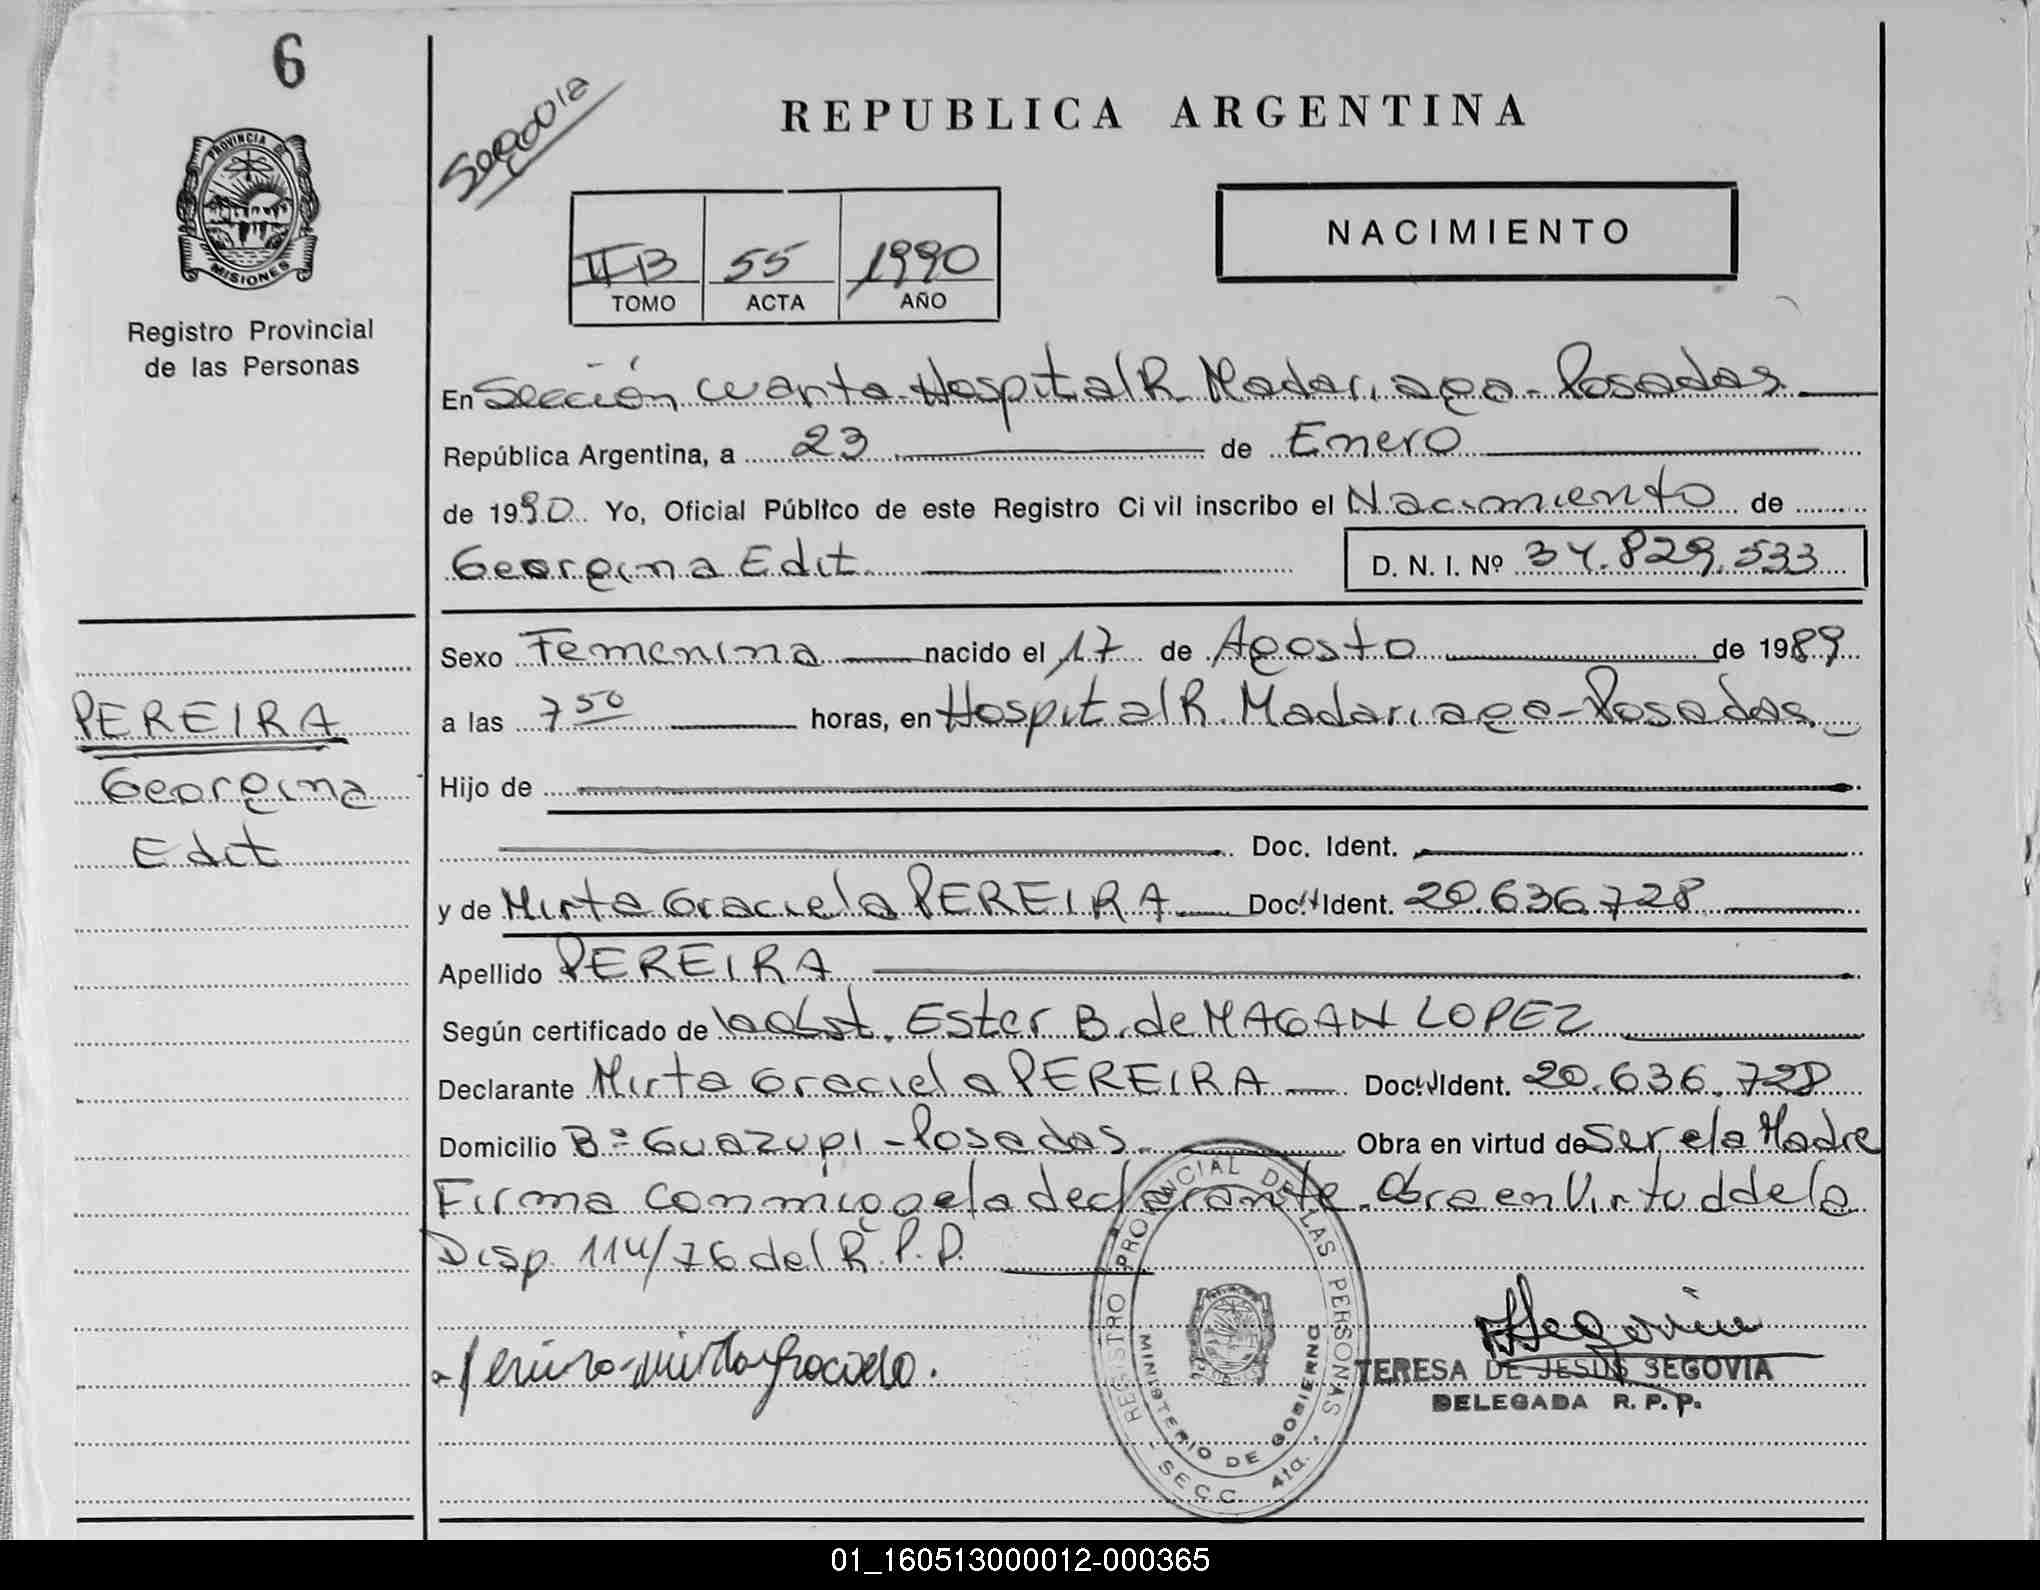 6
PROVINCIA DE
MISIONES
Registro Provincial
de las Personas
Segovia
REPUBLICA ARGENTINA
NACIMIENTO
II B 55 1990
TOMO ACTA AÑO
En Sección cuarta-Hospital R. Madariaga-Posadas
República Argentina, a 23 de Enero
de 1990. Yo, Oficial Público de este Registro Civil inscribo el Nacimiento de
Georgina Edit D. N. I. Nº 34.829.533
Sexo Femenina nacido el 17 de Agosto de 1989
a las 7 50 horas, en Hospital R. Madariaga-Posadas
PEREIRA
Georgina
Edit
Hijo de
Doc. Ident.
y de Mirta Graciela PEREIRA Doc. Ident. 20.636.728
Apellido PEREIRA
Según certificado de la Obst. Ester B. de MAGAN LOPEZ
Declarante Mirta Graciela PEREIRA Doc. Ident. 20.636.728
Domicilio Bº Guazupi-Posadas Obra en virtud de ser ela Madre
Firma conmigo ela declarante. Obra en Virtud de la
Disp. 114/76 del R. P. P.
Pereira-mirta graciela.
REGISTRO PROVINCIAL DE LAS PERSONAS
MINISTERIO DE GOBIERNO
- SECC. 4ta. -
TERESA DE JESUS SEGOVIA
DELEGADA R. P. P.
01_160513000012-000365